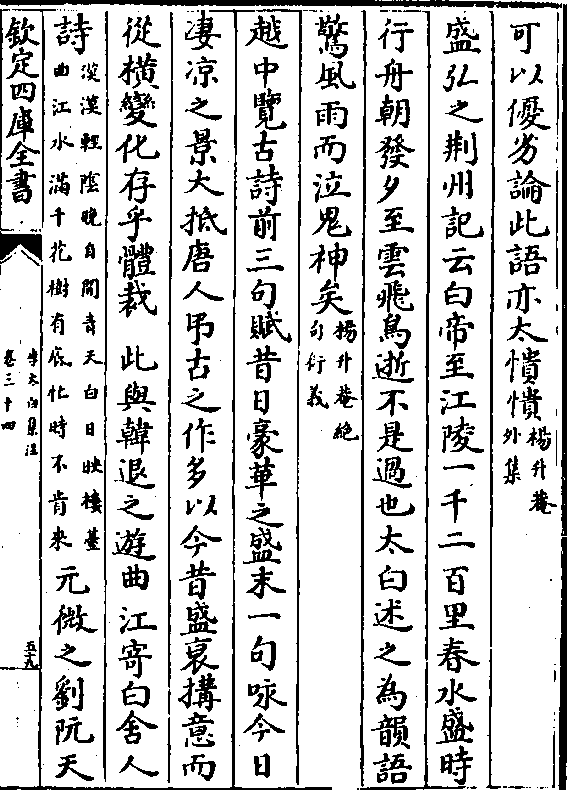 可以優劣論此語亦太憒憒楊升菴
外集
盛弘之荆州記云白帝至江陵一千二百里春水盛時
行舟朝發夕至雲飛鳥逝不是過也太白述之為韻語
驚風雨而泣鬼神矣楊升菴絶
句衍義
越中覽古詩前三句賦昔日豪華之盛末一句咏今日
凄凉之景大抵唐人弔古之作多以今昔盛衰搆意而
從横變化存乎體裁 此與韓退之遊曲江寄白舍人
詩漠漠輕陰晚自開青天白日映樓臺
曲江水滿千花樹有底忙時不肯來元微之劉阮天
欽定四庫全書
李太白集注
卷三十四
五九